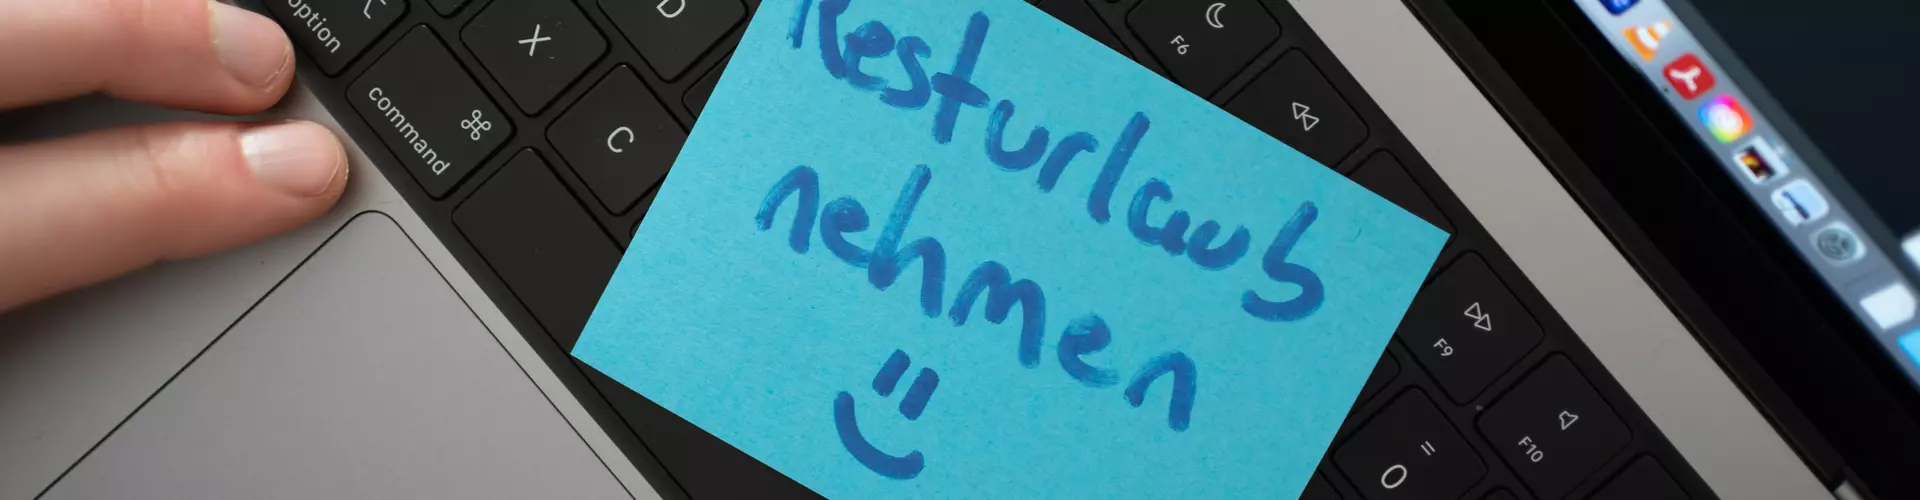 Resturlaub
nehmen
option
command
X
D
C
F6
F9
F10
=
0